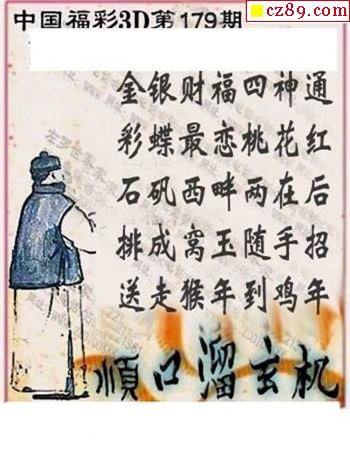 cz89.com
中国福彩3D第179期
金银财福四神通
彩蝶最恋桃花红
石矶西畔两在后
挑成窝玉随手招
送走猴年到鸡年
順口溜玄机